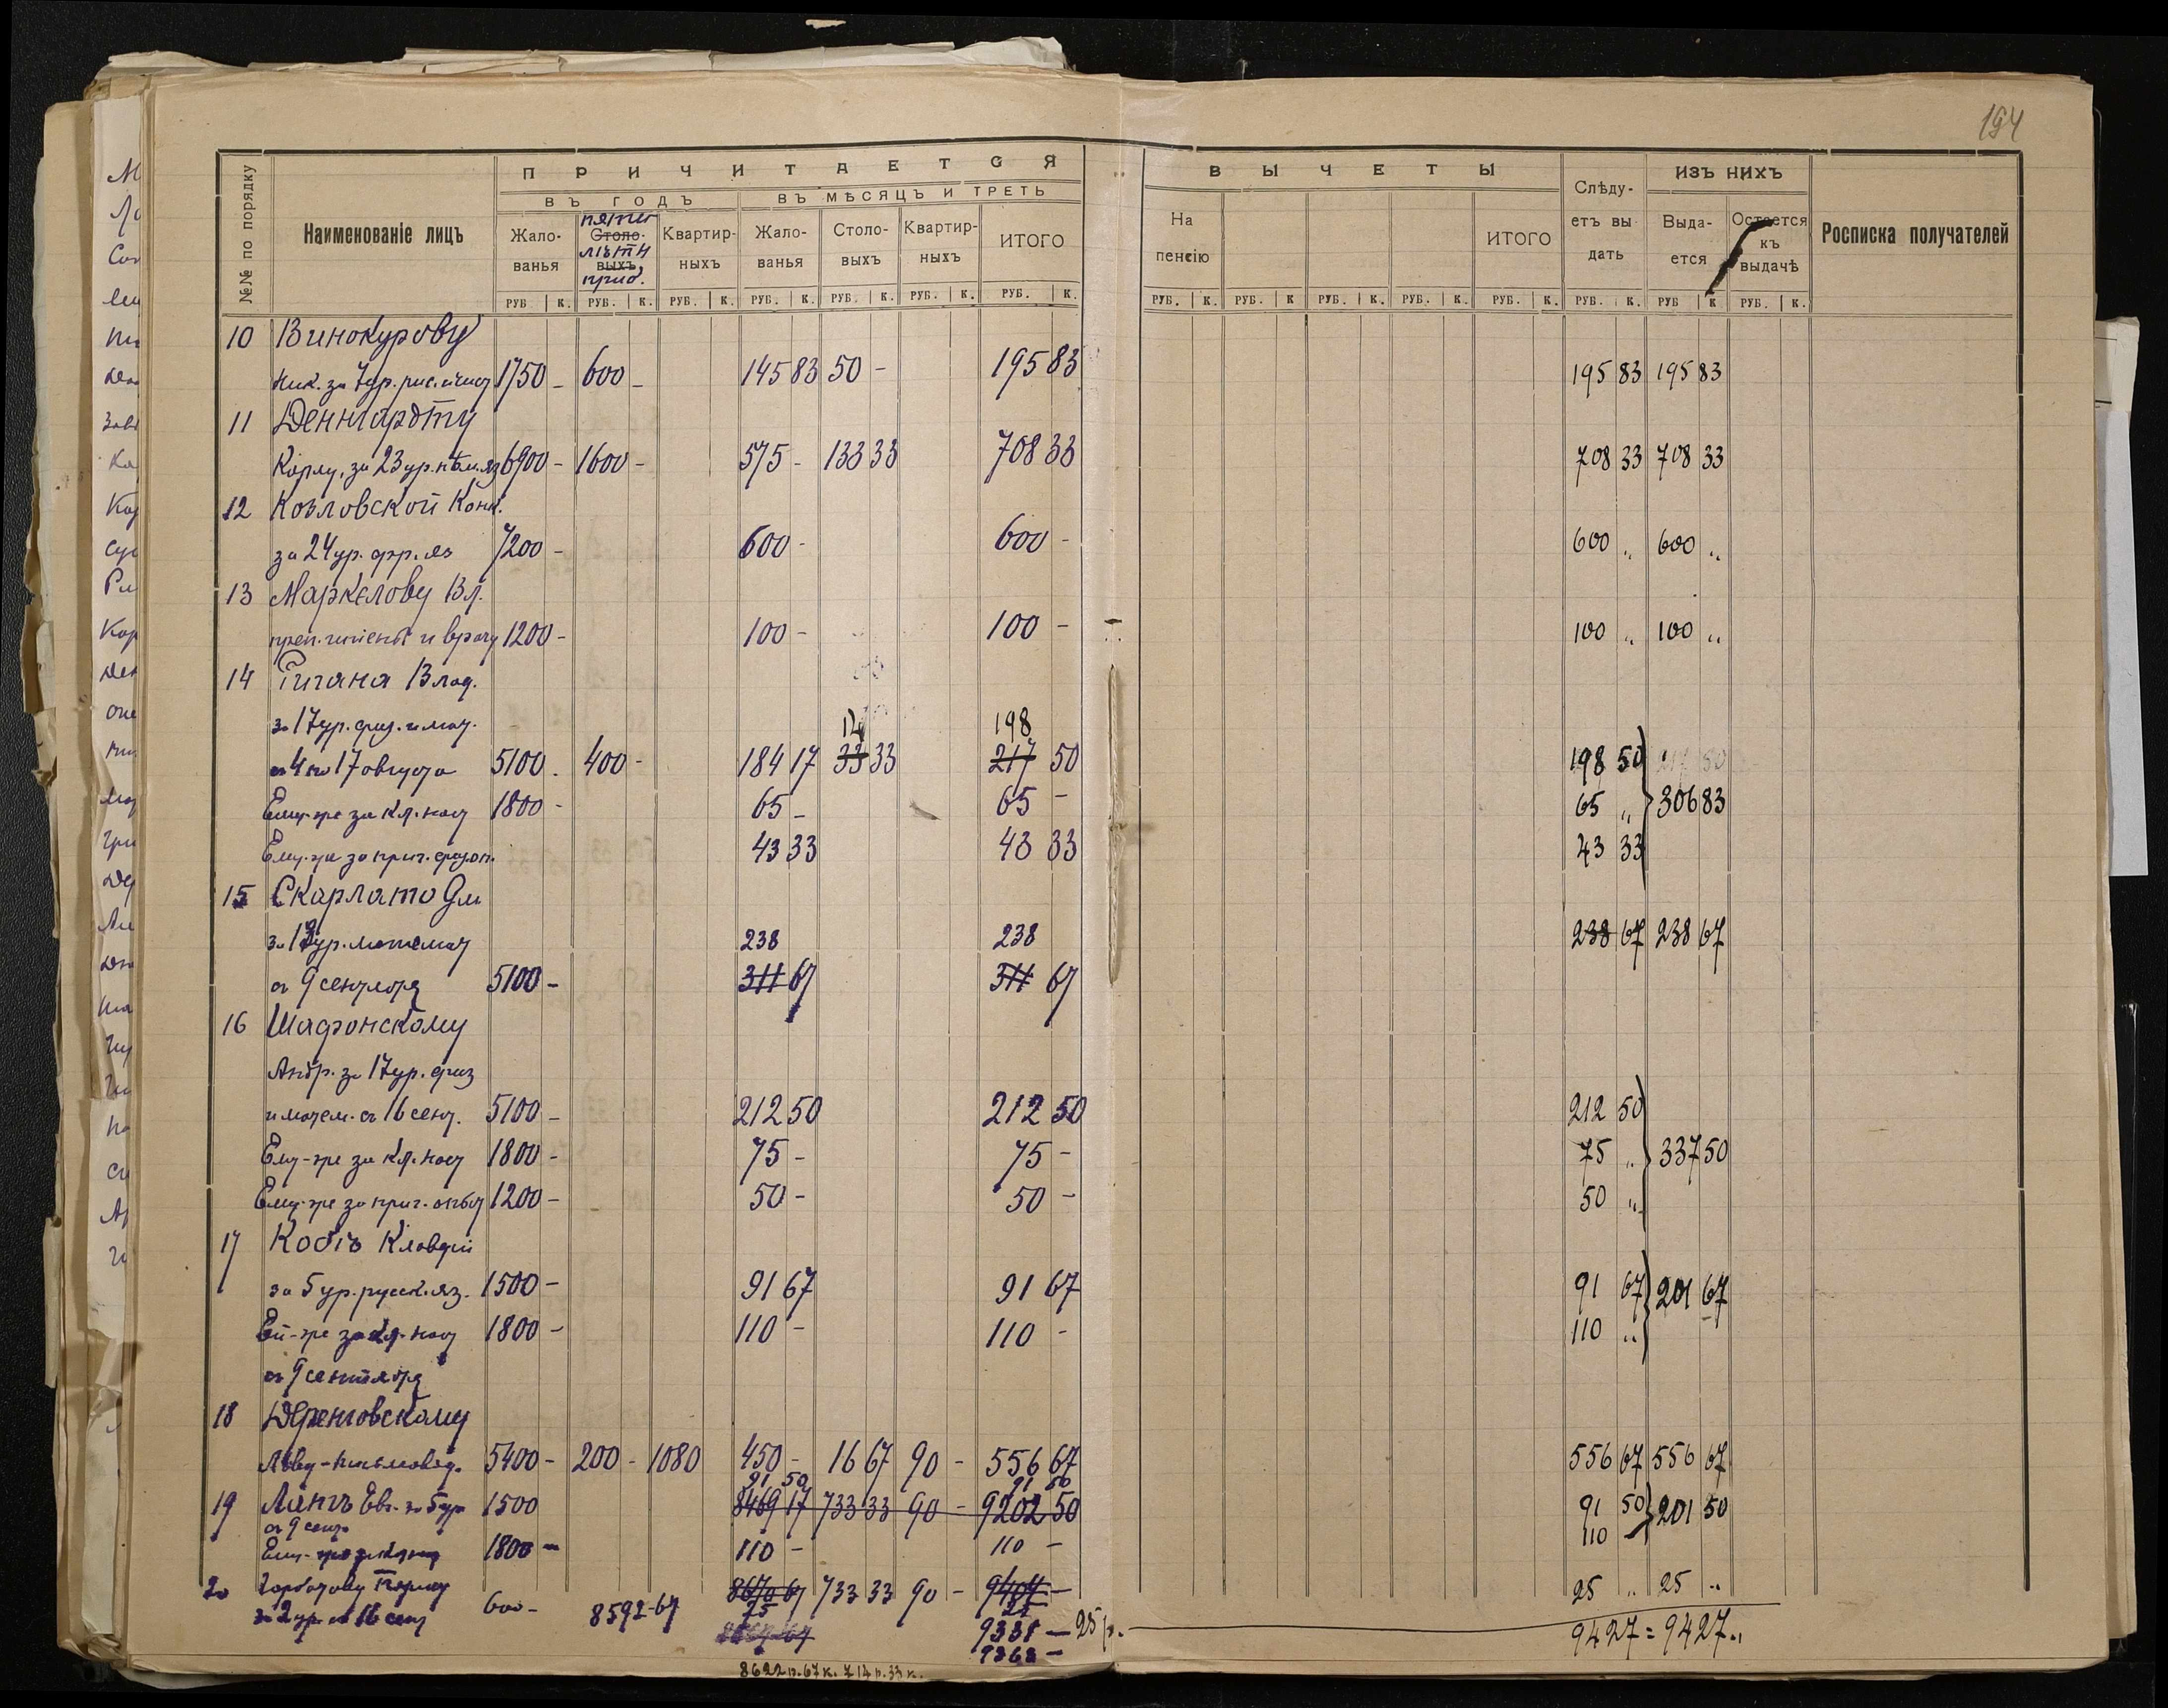 194
№№ по порядку
Наименованіе лицъ
ПРИЧИТАЕТСЯ
ВЪ ГОДЪ
ВЪ МѢСЯЦЪ И ТРЕТЬ
Жало-ванья
Столо-выхъ
пяти лѣтн приб.
Квартир-ныхъ
Жало-ванья
Столо-выхъ
Квартир-ныхъ
ИТОГО
РУБ. К. РУБ. К. РУБ. К. РУБ. К. РУБ. К. РУБ. К. РУБ. К.
ВЫЧЕТЫ
На пенсію
ИТОГО
Слѣду-етъ вы-дать
ИЗЪ НИХЪ
Выда-ется
Остается къ выдачѣ
Росписка получателей
РУБ. К. РУБ. К РУБ. К. РУБ. К. РУБ. К. РУБ. К. РУБ К РУБ. К.
10 Винокурову
Ник. за 7 ур. рис. и чист 1750 - 600 - 145 83 50 - 195 83 195 83 195 83
11 Деннгардту
Карлу, за 23 ур. нѣм. яз 6900 - 1600 - 575 - 133 33 708 33 708 33 708 33
12 Козловской Конк.
за 24 ур. фр. яз 7200 - 600 - 600 - 600 „ 600 „
13 Маркелову Вл.
преп. гигіены и врачу 1200 - 100 - 100 - 100 „ 100 „
14 Гигана Влад.
за 17 ур. физ. и мат. 14 198
съ 4 по 17 августа 5100 . 400 - 184 17 33 33 217 50 198 50
Ему-же за кл. наст 1800 - 65 - 65 - 65 „ 306 83
Ему-же за приг. физ. 43 33 43 33 43 33
15 Скарлато Дм
за 17 ур. математ 238 238 238 67 238 67
съ 9 сентября 5100 - 311 67 311 67
16 Шафонскому
Андр. за 17 ур. физ
и матем. съ 16 сент. 5100 - 212 50 212 50 212 50
Ему-же за кл. наст 1800 - 75 - 75 - 75 „ 337 50
Ему-же за приг. 1200 - 50 - 50 - 50 „
17 Клавдіи
за 5 ур. русск. яз. 1500 - 91 67 91 67 91 67 201 67
Ей-же за кл. наст 1800 - 110 - 110 - 110 „
съ 9 сентября
18 Деренговскому
Льву - письмовод. 5400 - 200 - 1080 450 - 16 67 90 - 556 67 556 67 556 67
91 50 91 50
19 Лангъ Евг. за 5 ур 1500 8469 17 733 33 90 - 9202 50 91 50 201 50
съ 9 сент.
Ему-же за кл. наст 1800 - 110 - 110 - 110 -
20 Горбатову
за 2 ур. съ 16 сент 600 - 8592-67 8670 67 733 33 90 - 9404 - 25 „ 25 „
25 25
9338 - 25 р. 9427 = 9427 „
9363 -
8622 р. 67 к. 714 р. 33 к.